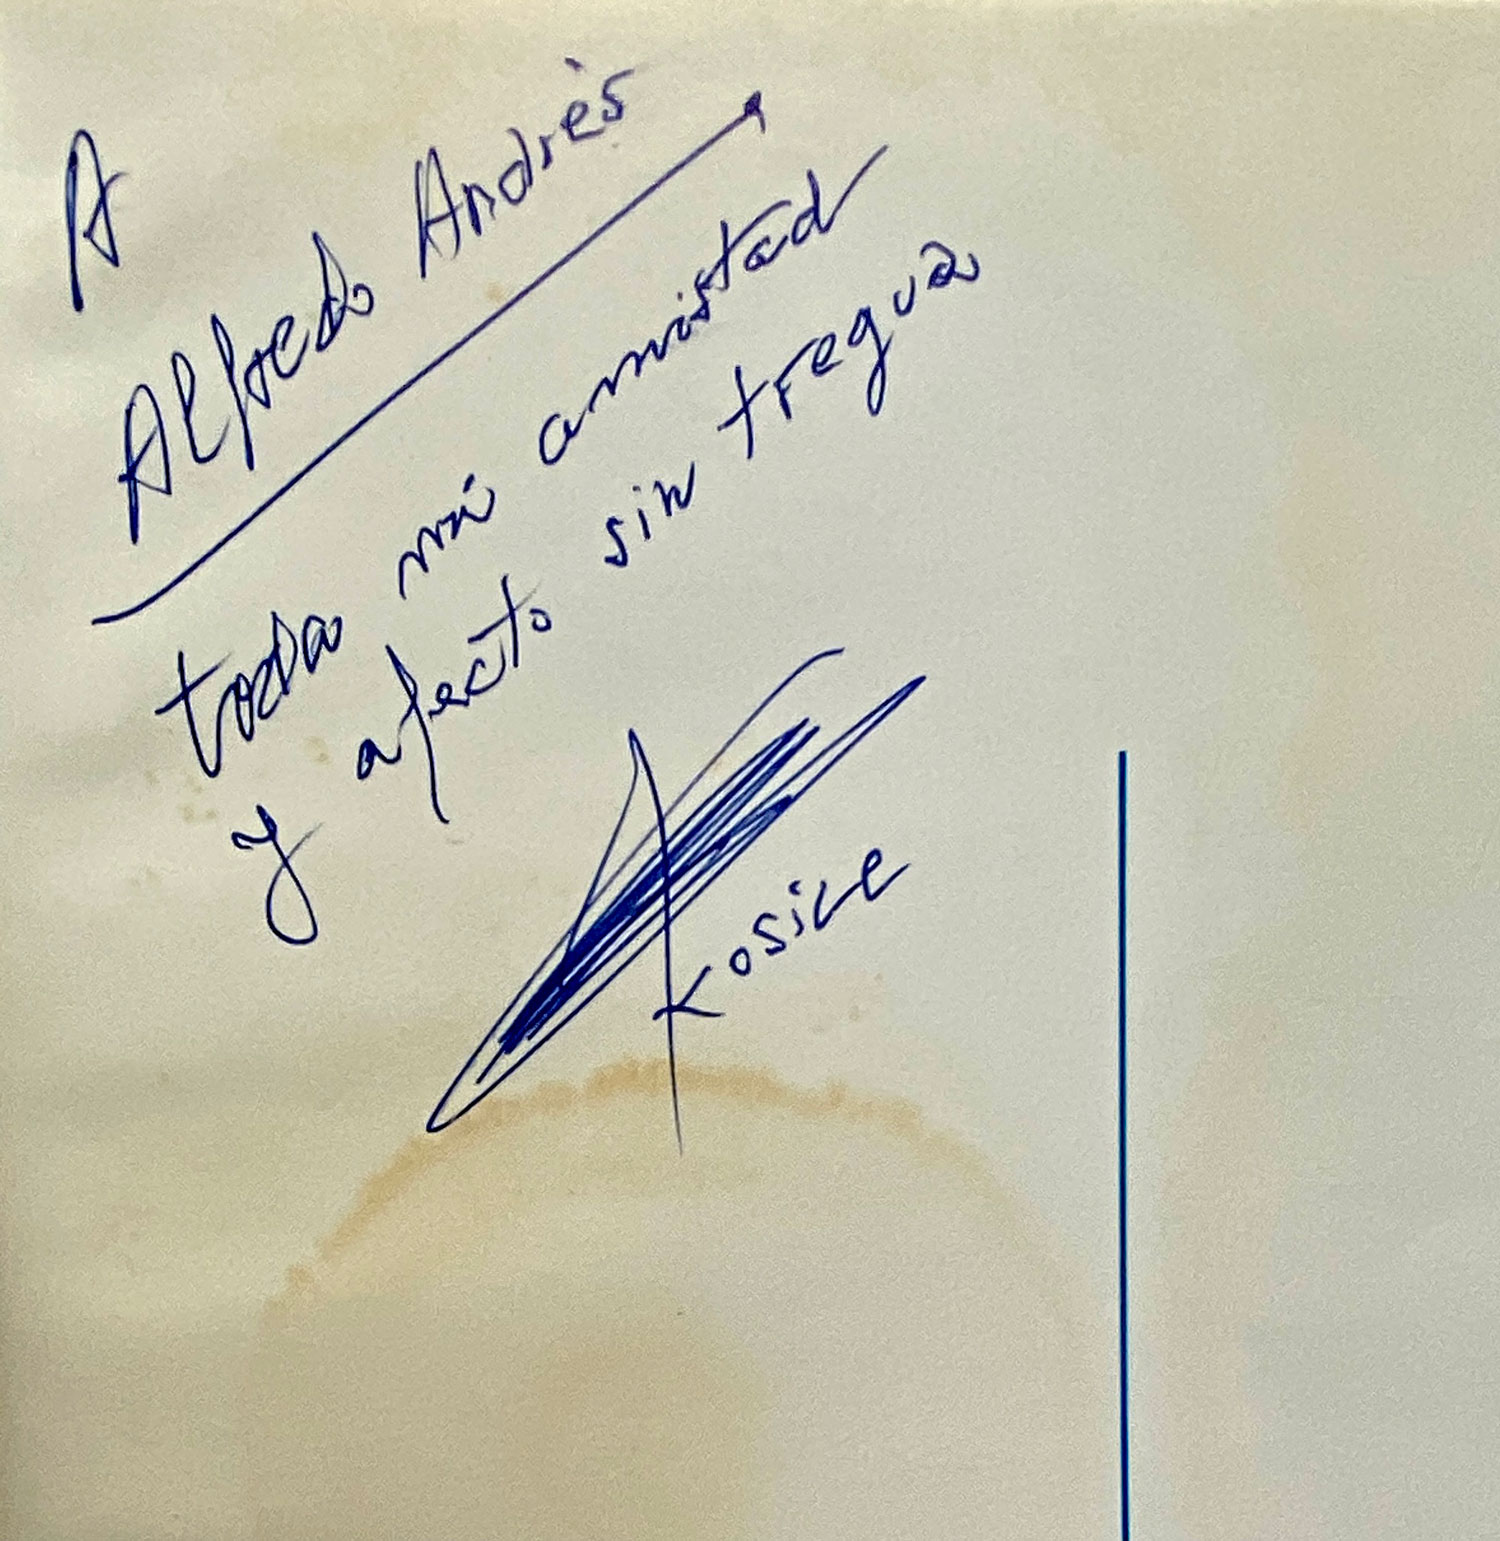 A
Alfredo Andrès
toda mi amistad
y afecto sin tregua
Kosice